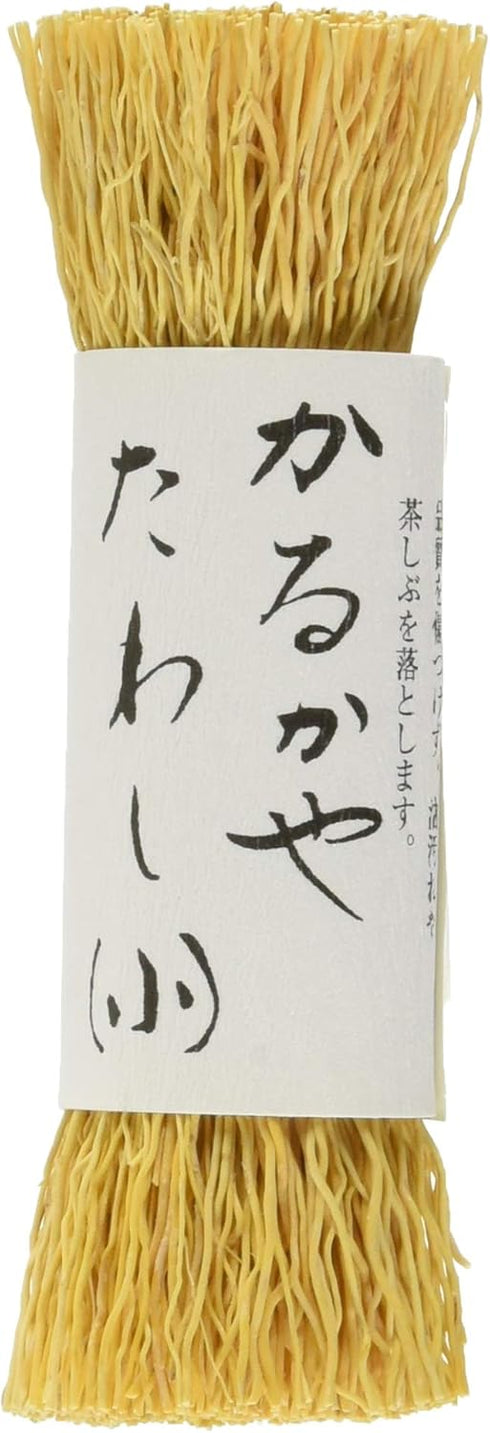 品質を傷つけず。油汚れや
茶しぶを落とします。
かるかや
たわし(小)